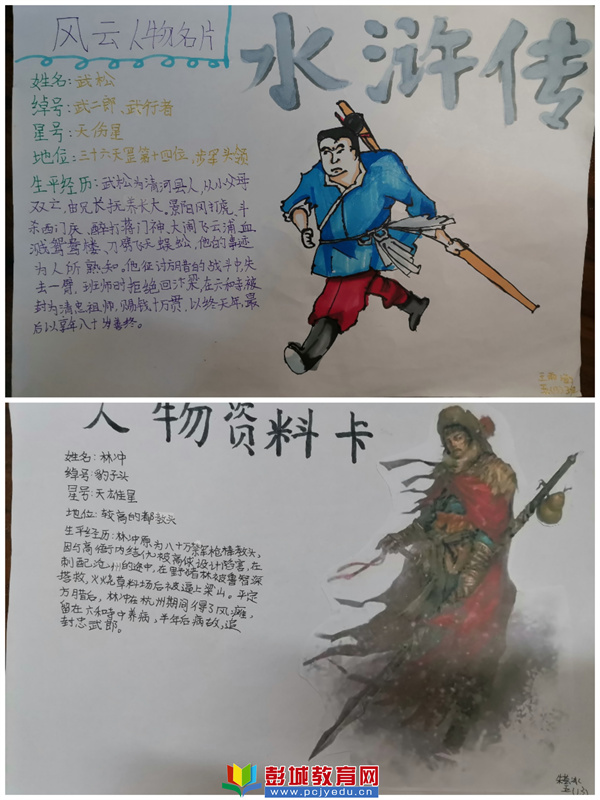 风云人物名片
水浒传
姓名:武松
绰号:武二郎、武行者
星号:天伤星
地位:三十六天罡第十四位,步军头领
生平经历:武松为清河县人,从小父母
双亡,由兄长抚养长大。景阳冈打虎、斗
杀西门庆、醉打蒋门神、大闹飞云浦、血
溅鸳鸯楼、刀劈飞天蜈蚣,他的事迹
为人所熟知。他征讨方腊的战斗中失
去一臂,班师时拒绝回汴梁,在六和寺被
封为清忠祖师,赐钱十万贯,以终天年,最
后以享年八十岁善终。
人物资料卡
姓名:林冲
绰号:豹子头
星号:天雄星
地位:较高的都教头
生平经历:林冲原为八十万禁军枪棒教头,
因与高衙内结仇被高俅设计陷害,在
刺配沧州的途中,在野猪林被鲁智深
搭救,火烧草料场后被逼上梁山。平定
方腊后,林冲在杭州期间得了风瘫,
留在六和寺中养病,半年后病故,追
封忠武郎。
彭城教育网
www.pcjyedu.cn